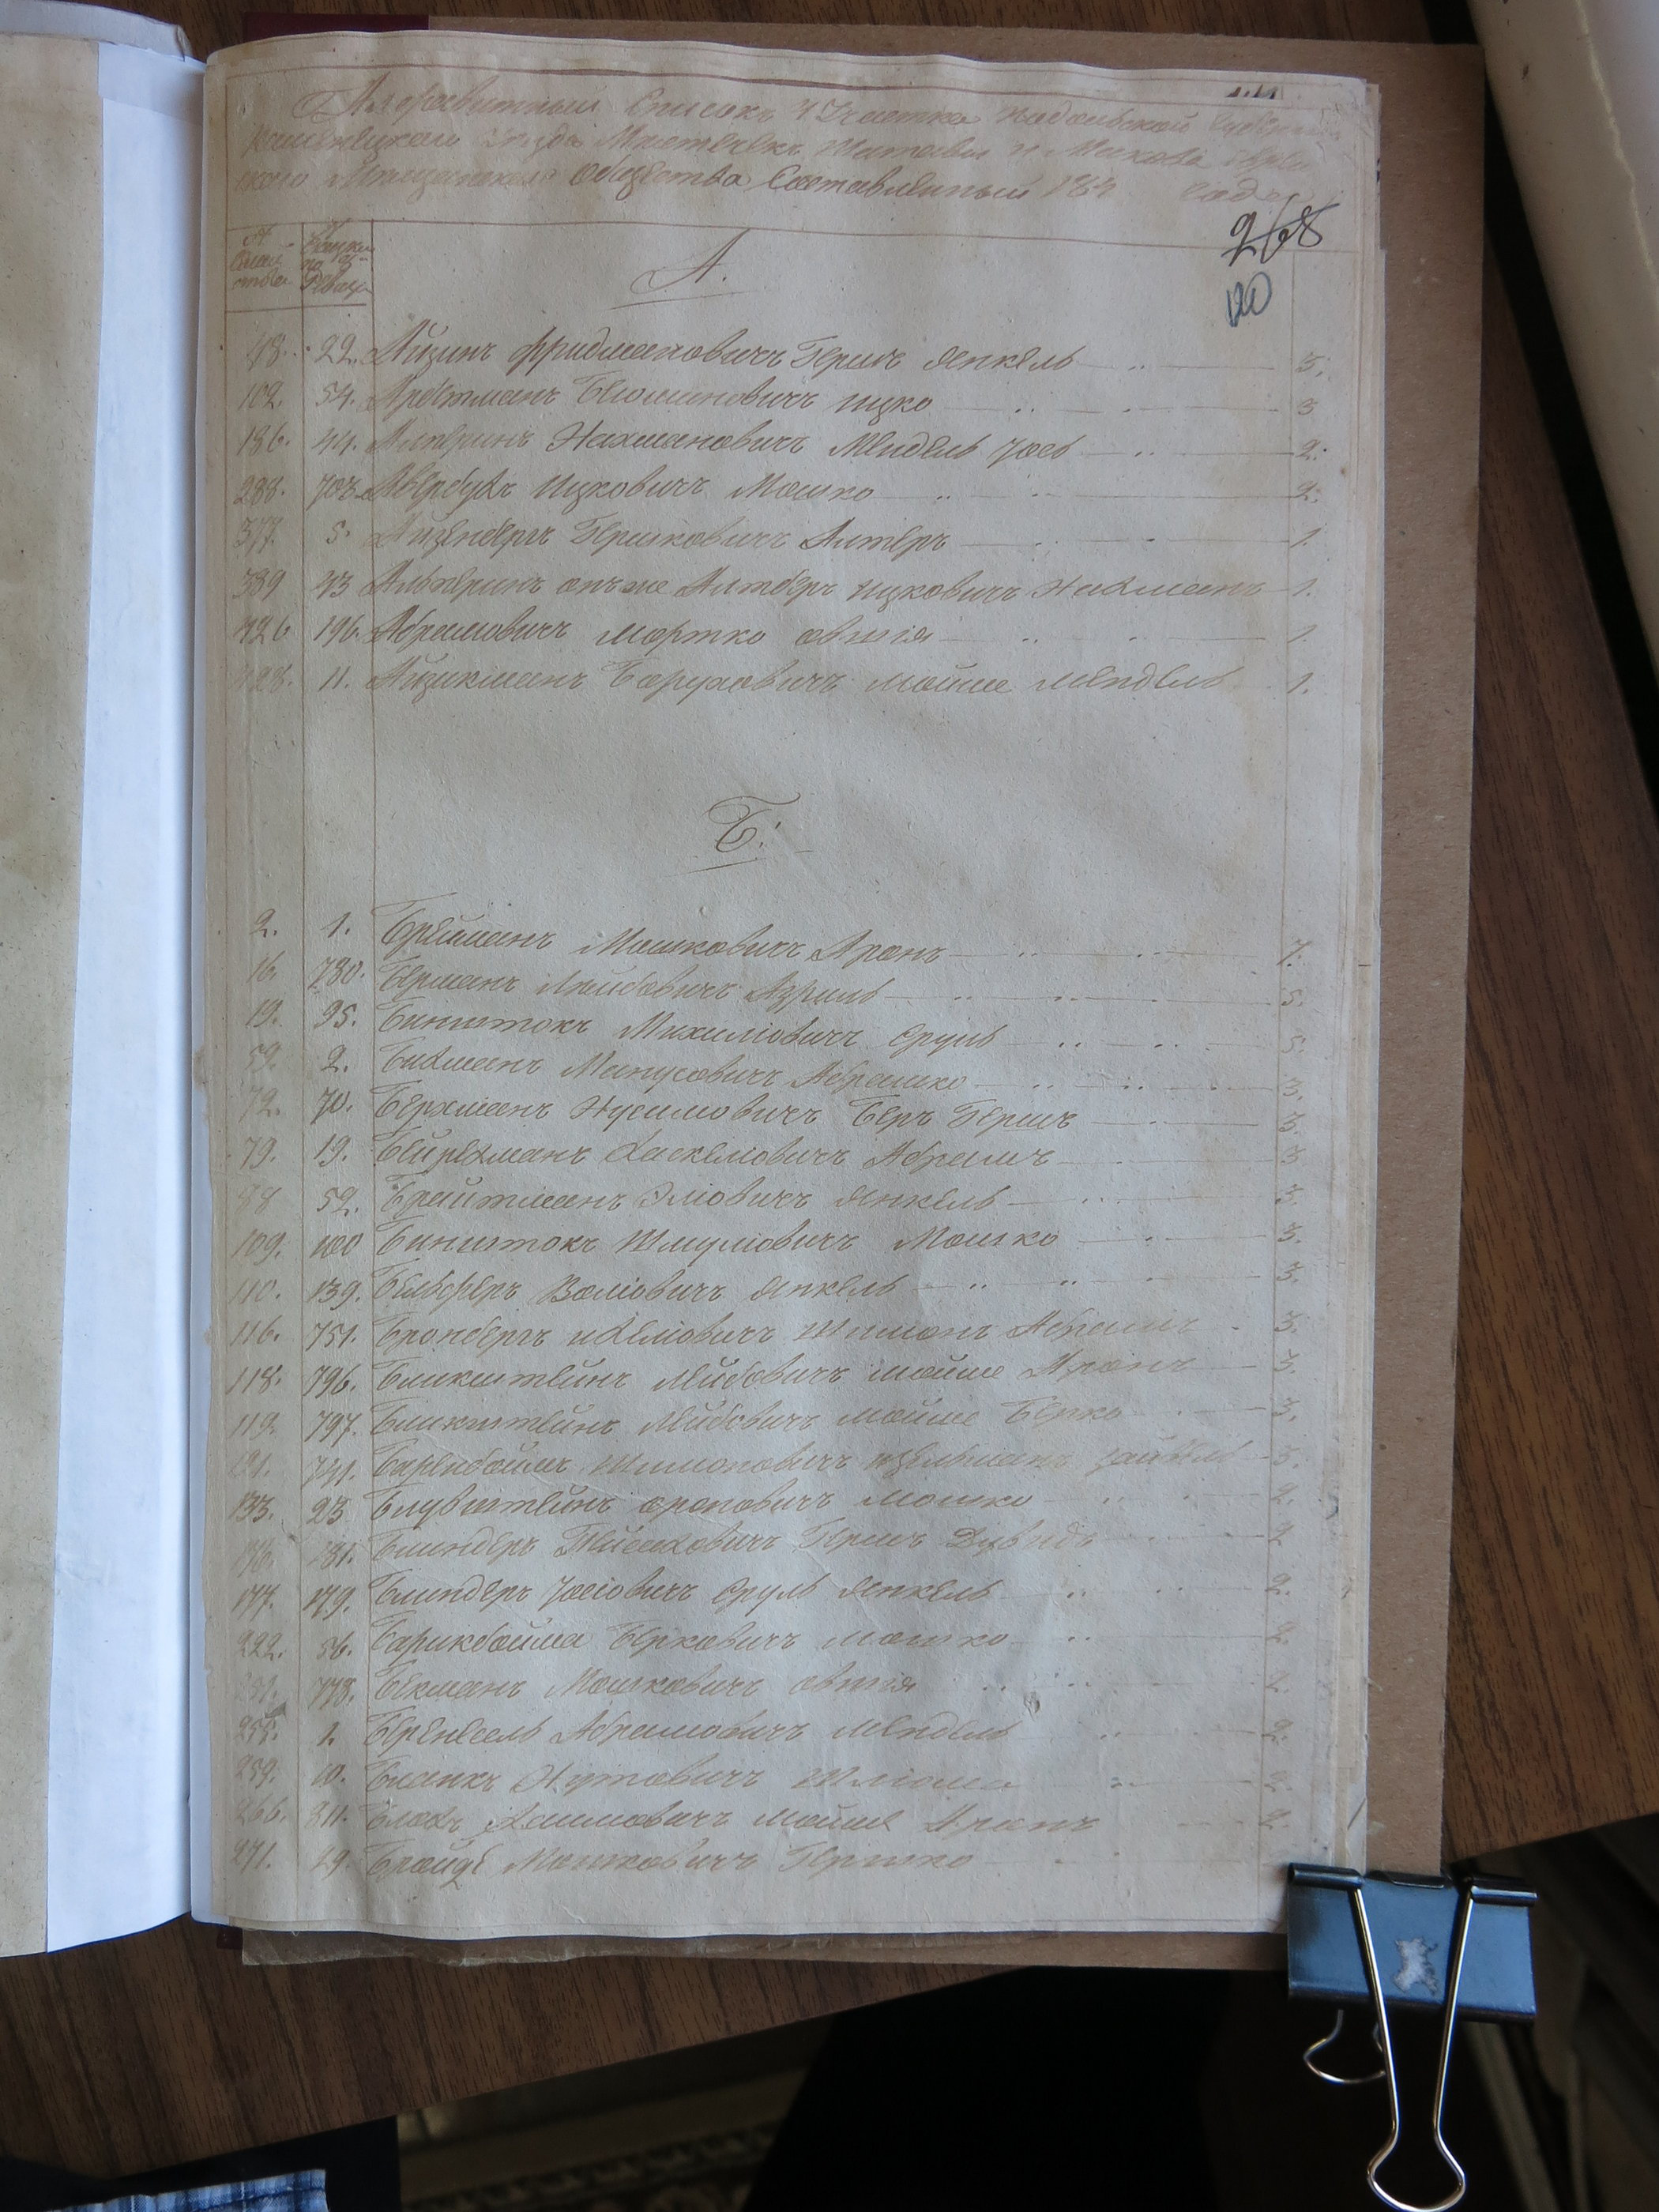 Алфавитный Списокъ 4 Участка Подольской Губерніи
Каменецкаго Уезда Местечекъ Шатавы и Макова Еврей
скаго Мещанскаго Общества Составленный 184 года
268
120
А.
48. 22. Айзинъ Фридмановичъ Гершъ Янкель 3.
102. 54. Бѣюминовичъ Ицко 3
186. 44. Нахмановичъ Мендель Іось 2.
288. 703. Авербухъ Ицковичъ Мошко 2.
377. 5. Айзенбергъ Гершковичъ Алтеръ 1.
389 43 Альперинъ онъ же Алтберъ Ицковичъ Нахманъ 1.
426 196. Абрамовичъ Мортко Овшія 1.
428. 11. Айзикманъ Боруховичъ Мойше Мендель 1.
Б.
2. 1. Мошковичъ Аронъ 7.
16. 780. Берманъ Лейбовичъ Азриль 5.
19. 95. Бинштокъ Михиліовичъ Сруль 5.
59. 2. Бихманъ Манусовичъ Абрашко 3.
72. 70. Нусимовичъ Беръ Гершъ 3.
79. 19. Хаскелювичъ Абрамъ 3
88 52. Брайтманъ Эліовичъ Янкель 3.
109. 100 Бинштокъ Шмуліовичъ Мошко 3.
110. 139. Бельферъ Воліовичъ Янкель 3.
116. 751. Бронбергъ Шимонъ Абрамъ 3.
118. 796. Бликштейнъ Лейбовичъ Мойше Аронъ 3.
119. 797. Бликштейнъ Лейбовичъ Мойше Берко 3.
121. 741. Беренбоймъ Шимоновичъ Зайвель 3.
133. 23 Блувштейнъ Ороновичъ Мошко 2.
Блиндеръ Гершъ Дувидъ 2
177. 179. Блиндеръ Іосіовичъ Сруль Янкель 2.
222. 56. Барикбойма Берковичъ Мошко 2.
778. Бекманъ Мошковичъ Овшія 2.
255. 1. Абрамовичъ Мендель 2.
259. 10. Бланкъ Нутовичъ Шліома 2.
266. 811. Блохъ Хаимовичъ Мойше Аронъ 2.
271. 29. Бройде Мошковичъ Гершко